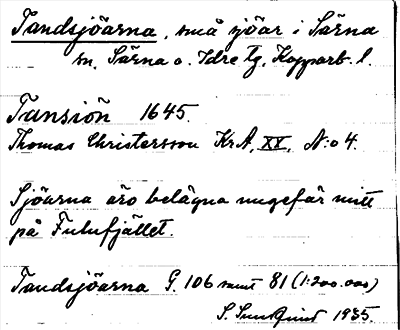 Tandsjöarna, små sjöar i Särna
sn, Särna o. Idre tg, Kopparb. l.
Tansiön 1645.
Thomas Christersson KrA, XX, N:o 4.
Sjöarna äro belägna ungefär mitt
på Fulufjället.
Tandsjöarna G. 106 samt 81 (1:200.000)
S. Sundquist 1935.